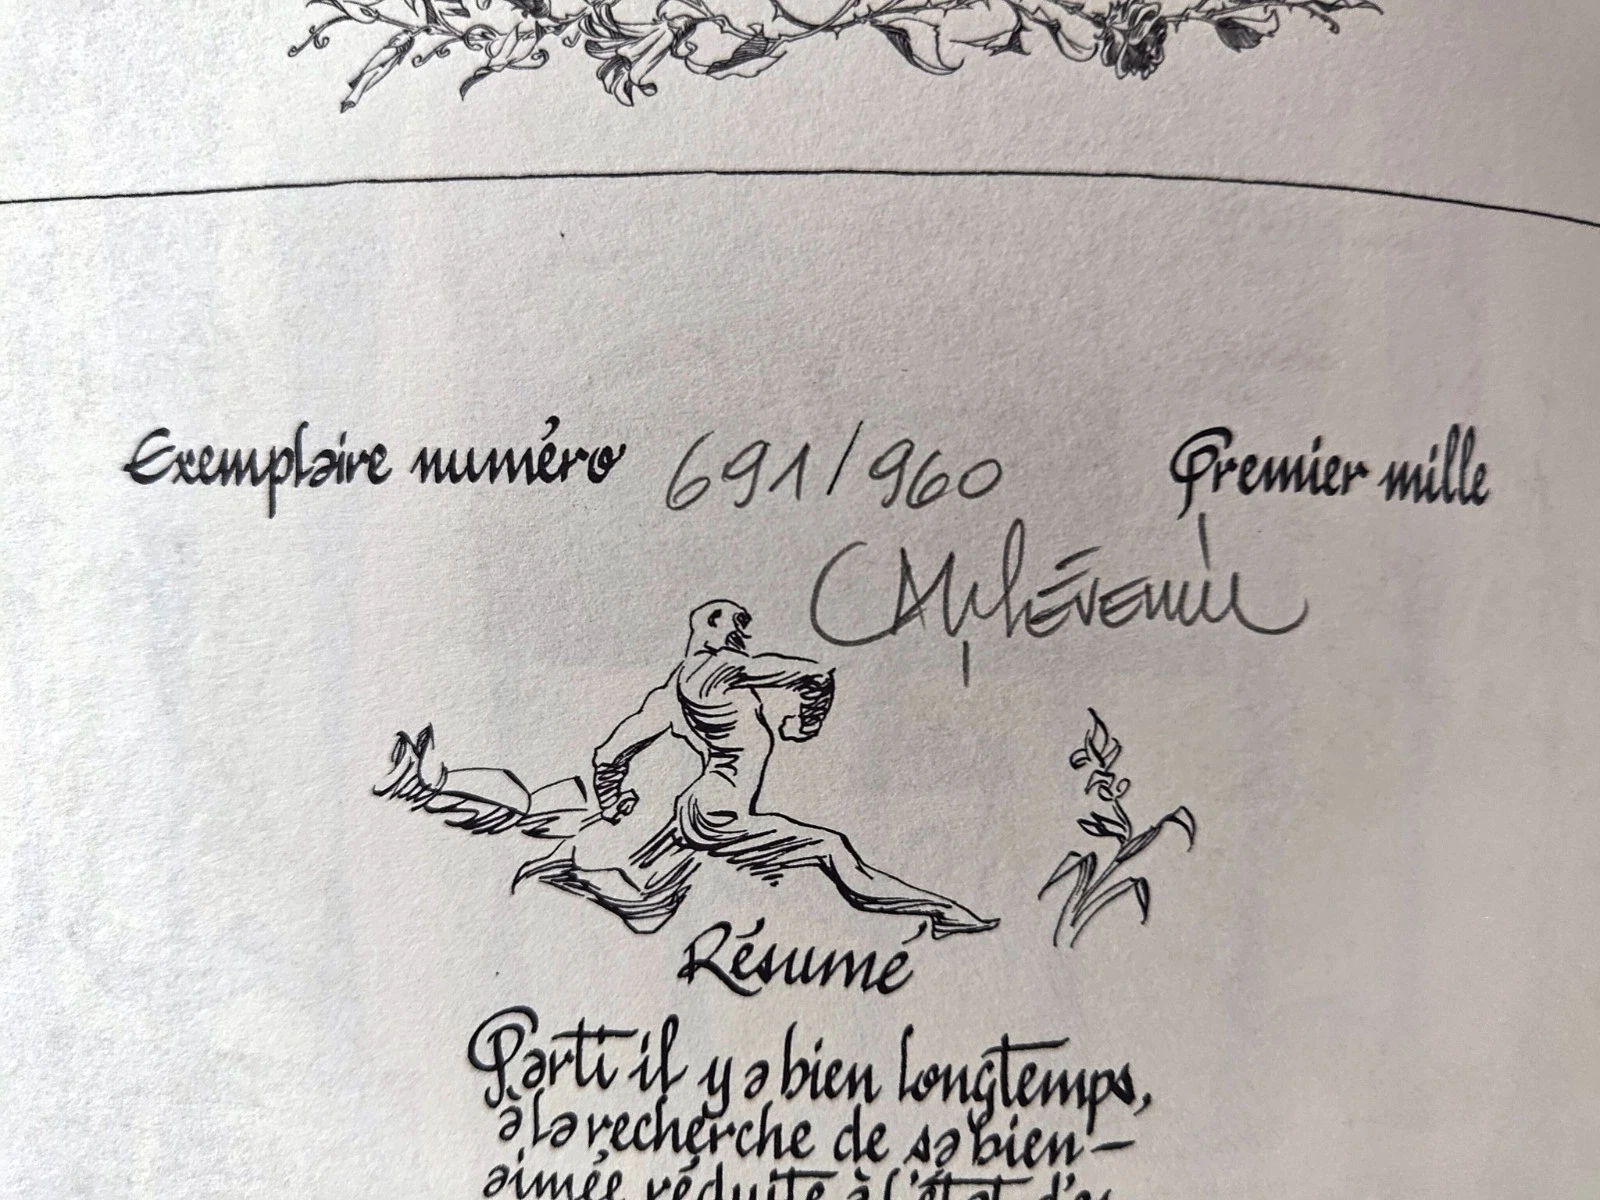 Exemplaire numéro 691/960 Premier mille
Résumé
Parti il y a bien longtemps,
à la recherche de sa bien-
aimée réduite à l'état d'